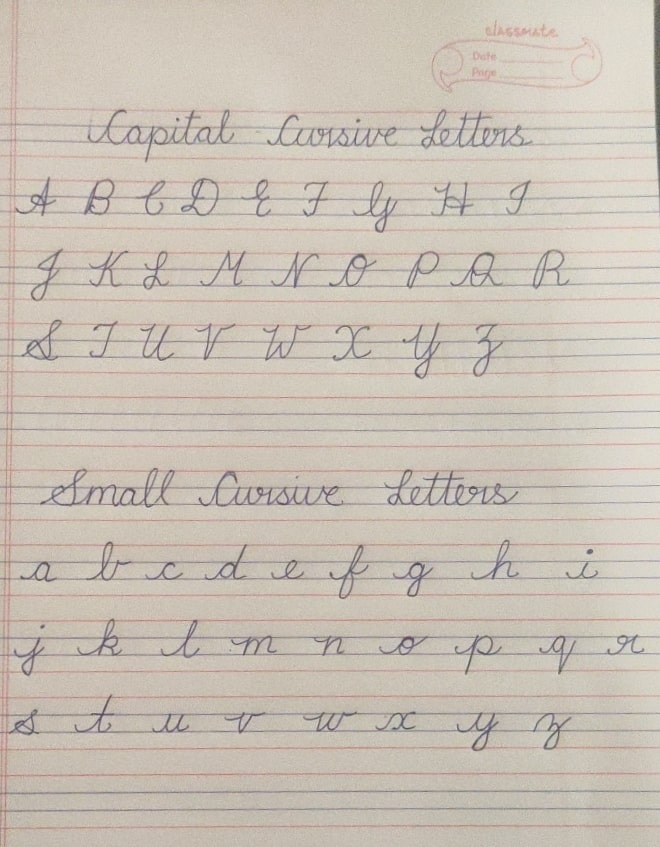 classmate
Date
Page
Capital Cursive Letters
A B C D E F G H I
J K L M N O P Q R
S T U V W X Y Z
Small Cursive Letters
a b c d e f g h i
j k l m n o p q r
s t u v w x y z